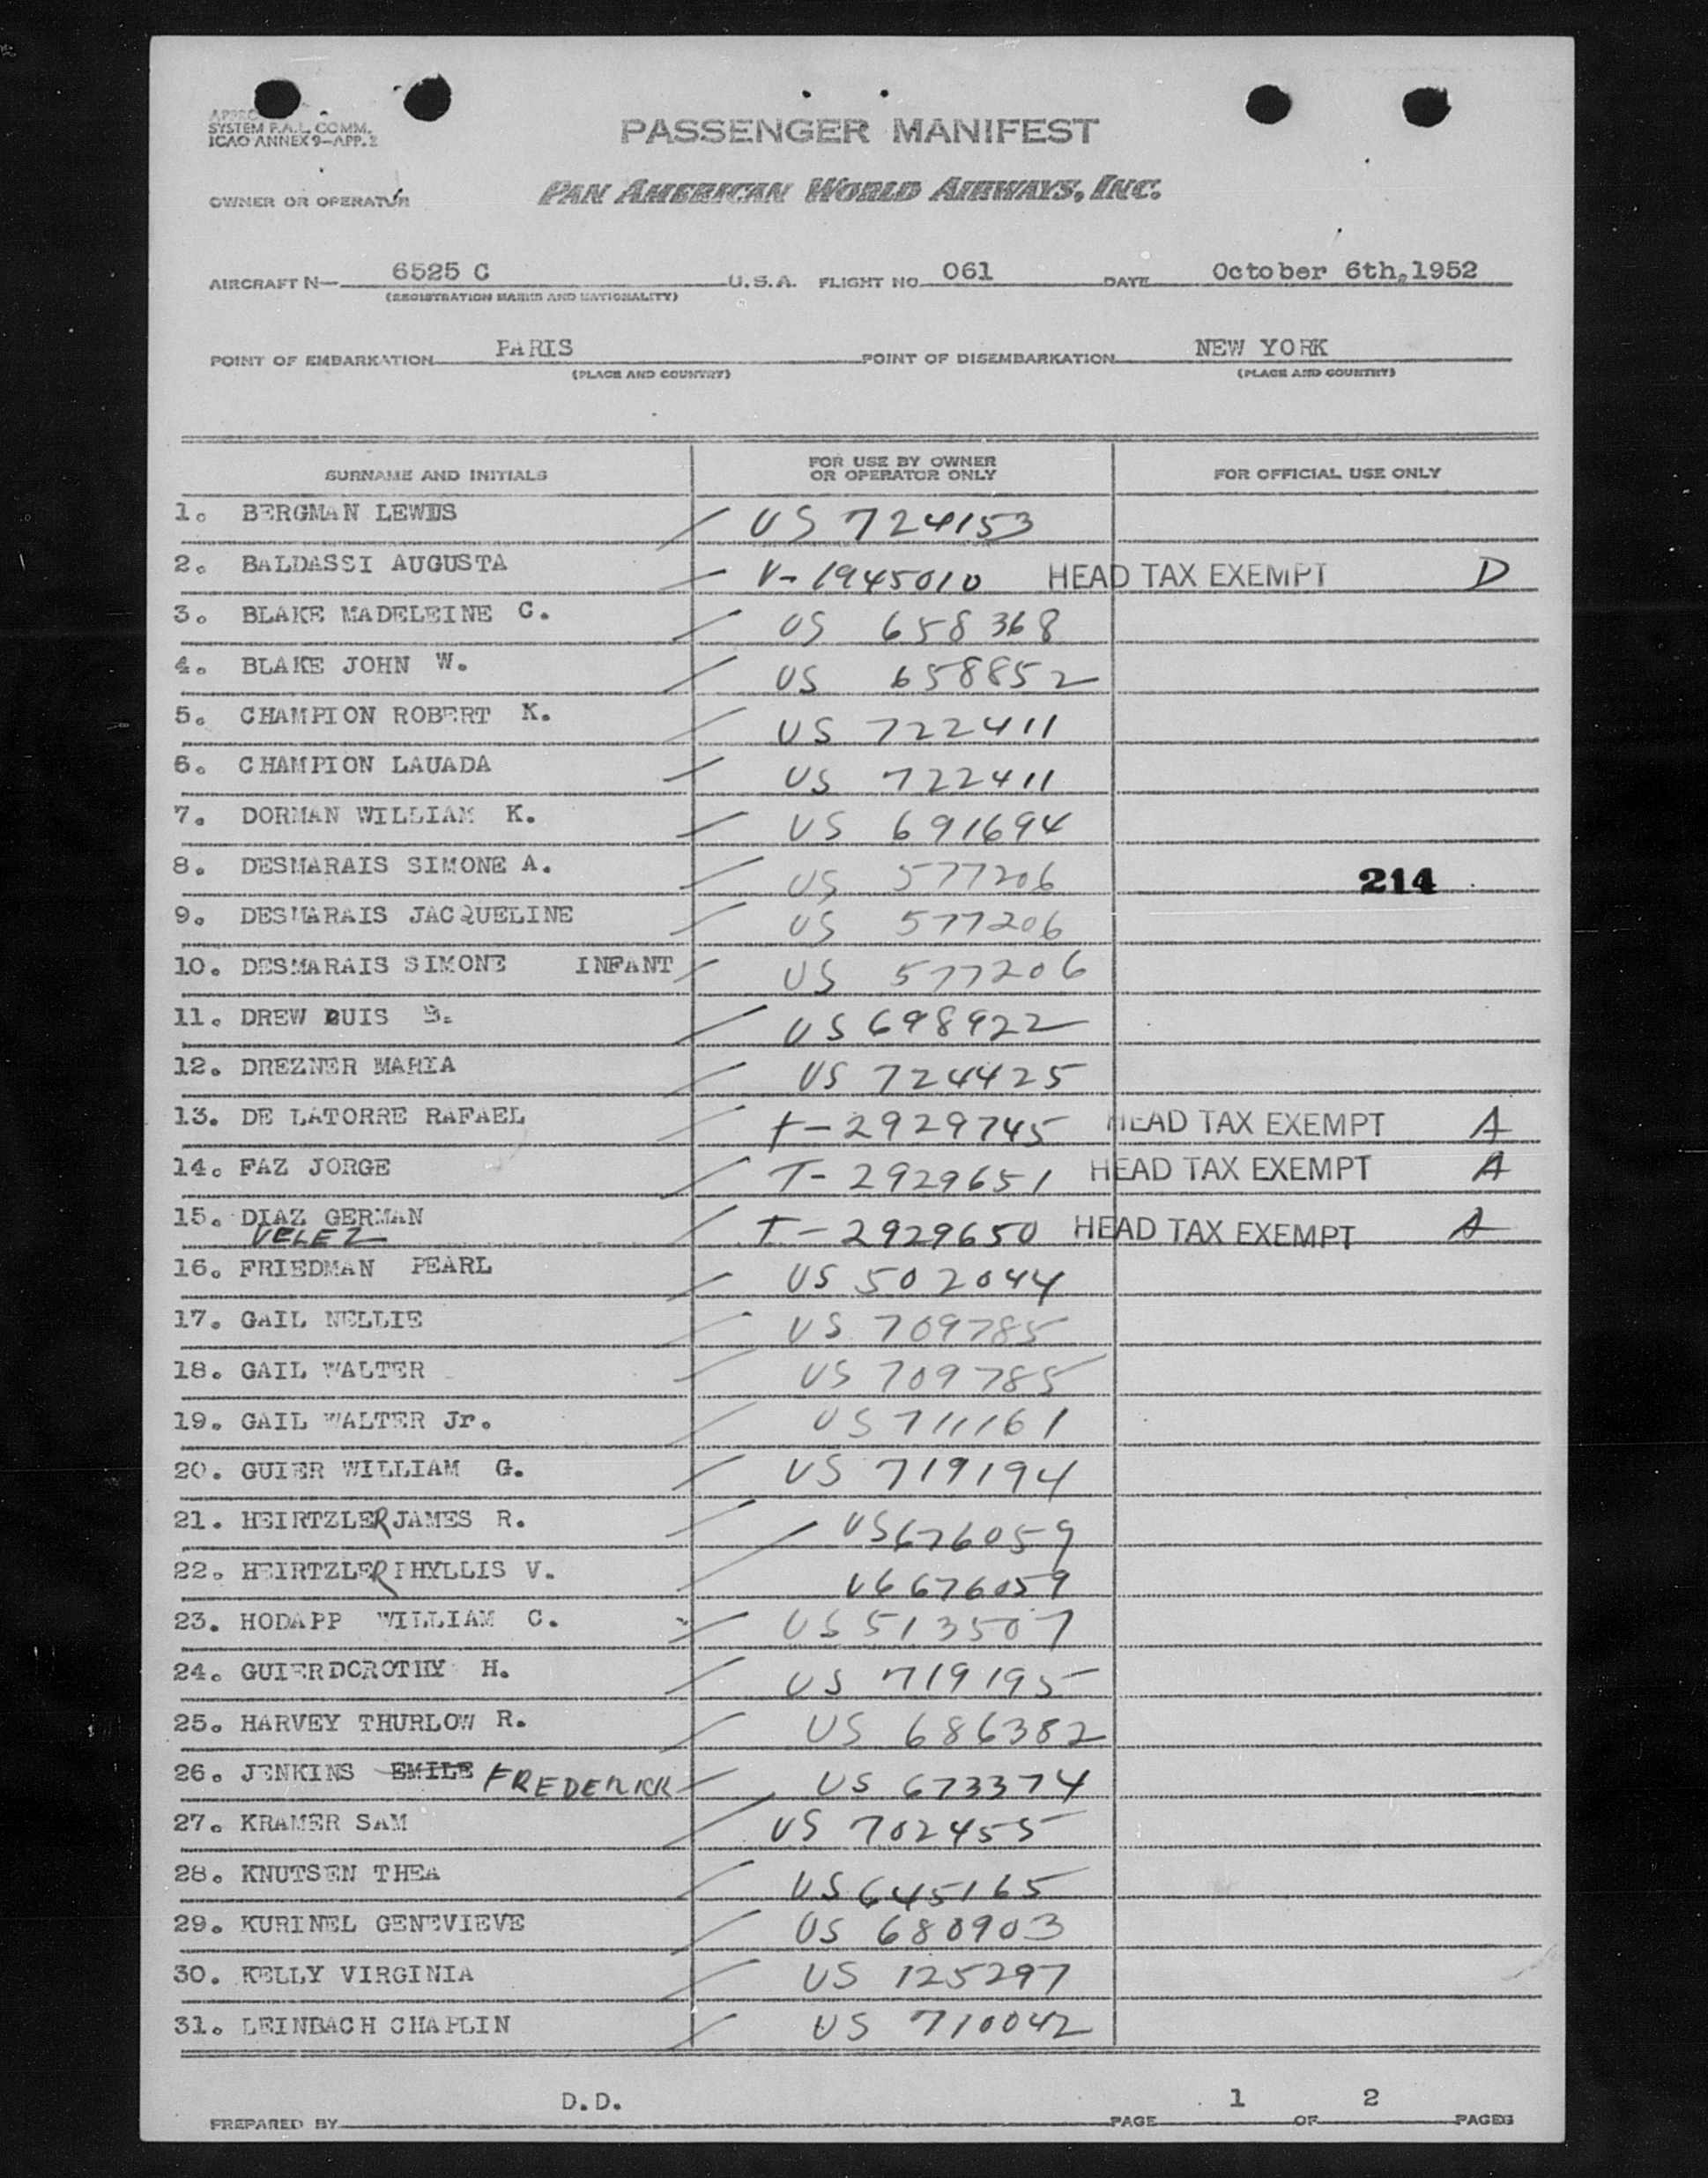 SYSTEM F.A.L. COMM.
ICAO ANNEX 9—APP. 2
PASSENGER MANIFEST
OWNER OR OPERATOR
PAN AMERICAN WORLD AIRWAYS, INC.
AIRCRAFT N— 6525 C U.S.A. FLIGHT NO. 061 DATE October 6th, 1952
(REGISTRATION MARKS AND NATIONALITY)
POINT OF EMBARKATION PARIS POINT OF DISEMBARKATION NEW YORK
(PLACE AND COUNTRY) (PLACE AND COUNTRY)
SURNAME AND INITIALS FOR USE BY OWNER OR OPERATOR ONLY FOR OFFICIAL USE ONLY
1. BERGMAN LEWIS US 724153
2. BALDASSI AUGUSTA V-1945010 HEAD TAX EXEMPT D
3. BLAKE MADELEINE C. US 658368
4. BLAKE JOHN W. US 658852
5. CHAMPION ROBERT K. US 722411
6. CHAMPION LAUADA US 722411
7. DORMAN WILLIAM K. US 691694
8. DESMARAIS SIMONE A. US 577206 214
9. DESMARAIS JACQUELINE US 577206
10. DESMARAIS SIMONE INFANT US 577206
11. DREW LUIS US 698922
12. DREZNER MARIA US 724425
13. DE LATORRE RAFAEL T-2929745 HEAD TAX EXEMPT A
14. FAZ JORGE T-2929651 HEAD TAX EXEMPT A
15. DIAZ GERMAN T-2929650 HEAD TAX EXEMPT A
VELEZ
16. FRIEDMAN PEARL US 502044
17. GAIL NELLIE US 709785
18. GAIL WALTER US 709785
19. GAIL WALTER Jr. US 711161
20. GUIER WILLIAM G. US 719194
21. HEIRTZLER JAMES R. US 676059
22. HEIRTZLER PHYLLIS V. US 676059
23. HODAPP WILLIAM C. US 513507
24. GUIER DOROTHY H. US 719195
25. HARVEY THURLOW R. US 686382
26. JENKINS EMILE FREDERICK US 673374
27. KRAMER SAM US 702455
28. KNUTSEN THEA US 645165
29. KURINEL GENEVIEVE US 680903
30. KELLY VIRGINIA US 125297
31. LEINBACH CHAPLIN US 710042
PREPARED BY D.D. PAGE 1 OF 2 PAGES